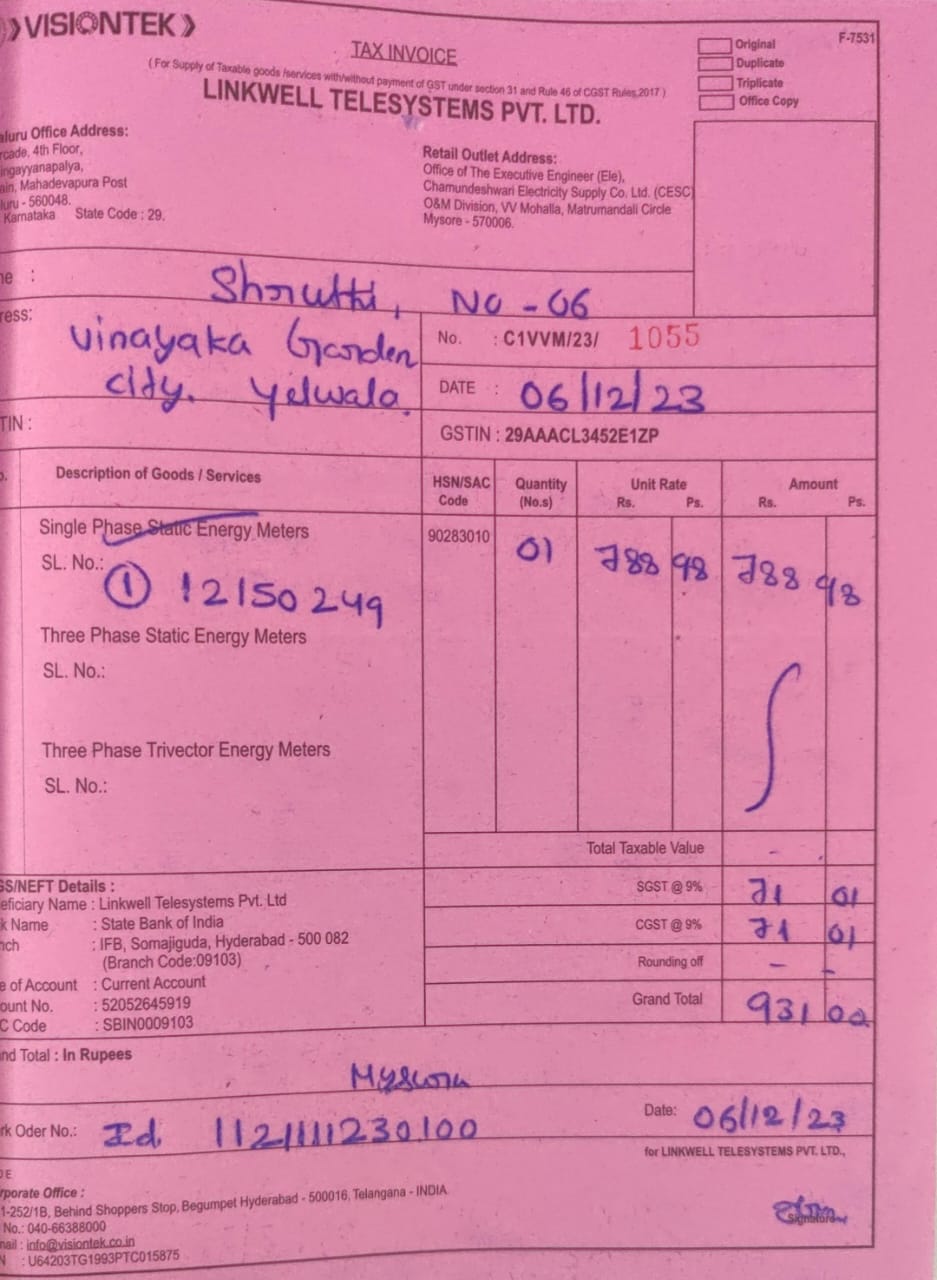 VISIONTEK
F-7531
TAX INVOICE
Original
Duplicate
Triplicate
Office Copy
( For Supply of Taxable goods /services with/without payment of GST under section 31 and Rule 46 of CGST Rules,2017 )
LINKWELL TELESYSTEMS PVT. LTD.
aluru Office Address:
rcade, 4th Floor,
ingayyanapalya,
ain, Mahadevapura Post
luru - 560048.
Karnataka State Code : 29.
Retail Outlet Address:
Office of The Executive Engineer (Ele),
Chamundeshwari Electricity Supply Co. Ltd. (CESC)
O&M Division, VV Mohalla, Matrumandali Circle
Mysore - 570006.
me : Shruthi, No - 06
ress: Vinayaka Garden
city. Yelwala.
No. : C1VVM/23/ 1055
DATE : 06/12/23
TIN :
GSTIN : 29AAACL3452E1ZP
o. Description of Goods / Services HSN/SAC Code Quantity (No.s) Unit Rate Rs. Ps. Amount Rs. Ps.
Single Phase Static Energy Meters 90283010 01 788 98 788 98
SL. No.: ① 12150249
Three Phase Static Energy Meters
SL. No.:
Three Phase Trivector Energy Meters
SL. No.:
Total Taxable Value -
SGST @ 9% 71 01
CGST @ 9% 71 01
Rounding off - -
Grand Total 931 00
GS/NEFT Details :
eficiary Name : Linkwell Telesystems Pvt. Ltd
k Name : State Bank of India
nch : IFB, Somajiguda, Hyderabad - 500 082
(Branch Code:09103)
e of Account : Current Account
ount No. : 52052645919
C Code : SBIN0009103
nd Total : In Rupees
rk Oder No.: Id 1121111230100
Date: 06/12/23
for LINKWELL TELESYSTEMS PVT. LTD.,
DE
rporate Office :
1-252/1B, Behind Shoppers Stop, Begumpet Hyderabad - 500016, Telangana - INDIA
No.: 040-66388000
mail : info@visiontek.co.in
N : U64203TG1993PTC015875
Signature